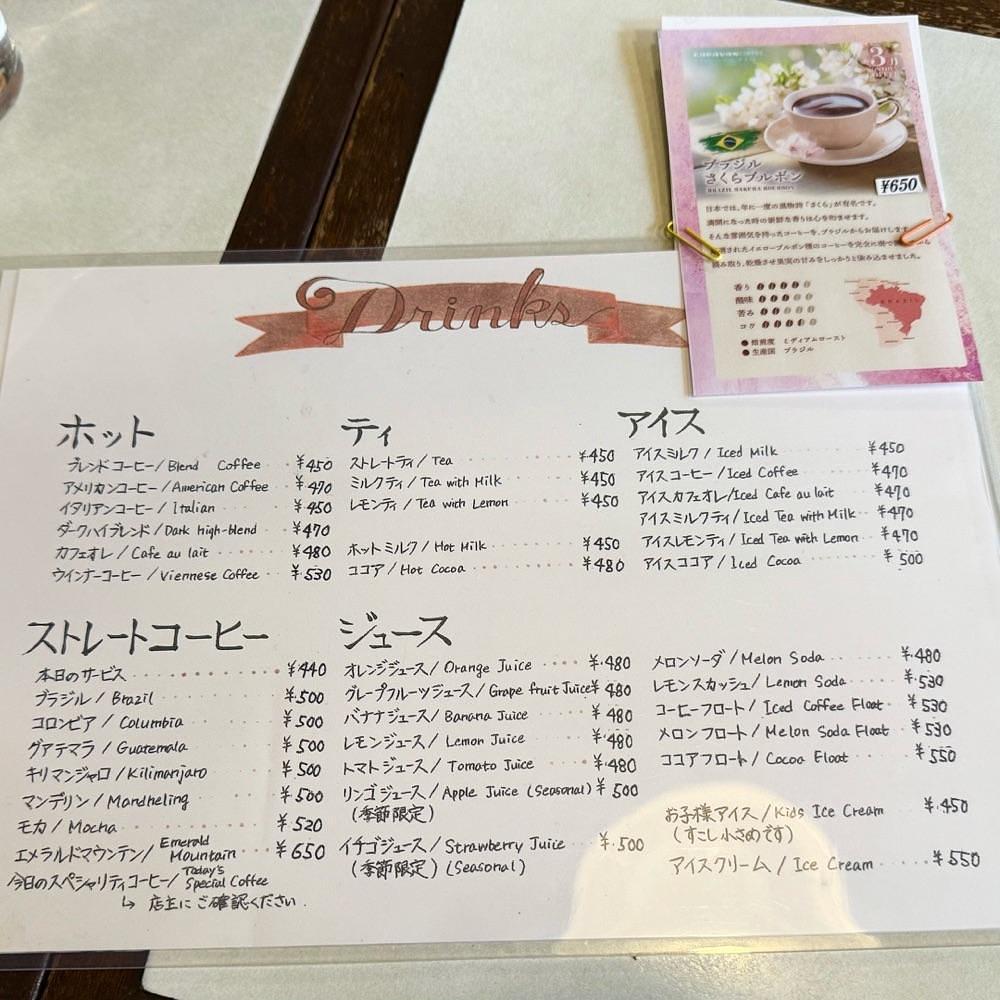 3月
ブラジル
さくらブルボン
BRAZIL SAKURA BOURBON
¥650
日本では、年に一度の風物詩「さくら」が有名です。
満開になった時の新鮮な香りは心を和ませます。
そんな雰囲気を持ったコーヒーを、ブラジルからお届けします
されたイエローブルボン種のコーヒーを完全に樹で
摘み取り、乾燥させ果実の甘みをしっかりと染み込ませました。
香り
酸味
苦み
コク
BRAZIL
●焙煎度 ミディアムロースト
●生産国 ブラジル
Drinks
ホット
ブレンドコーヒー/Blend Coffee ¥450
アメリカンコーヒー/American Coffee ¥470
イタリアンコーヒー/Italian ¥450
ダークハイブレンド/Dark high-blend ¥470
カフェオレ/Cafe au lait ¥480
ウインナーコーヒー/Viennese Coffee ¥530
ティ
ストレートティ/Tea ¥450
ミルクティ/Tea with Milk ¥450
レモンティ/Tea with Lemon ¥450
ホットミルク/Hot Milk ¥450
ココア/Hot Cocoa ¥480
アイス
アイスミルク/Iced Milk ¥450
アイスコーヒー/Iced Coffee ¥470
アイスカフェオレ/Iced Cafe au lait ¥470
アイスミルクティ/Iced Tea with Milk ¥470
アイスレモンティ/Iced Tea with Lemon ¥470
アイスココア/Iced Cocoa ¥500
ストレートコーヒー
本日のサービス ¥440
ブラジル/Brazil ¥500
コロンビア/Columbia ¥500
グアテマラ/Guatemala ¥500
キリマンジャロ/Kilimanjaro ¥500
マンデリン/Mandheling ¥500
モカ/Mocha ¥520
エメラルドマウンテン/Emerald Mountain ¥650
今日のスペシャリティコーヒー/Today's Special Coffee
↳ 店主にご確認ください.
ジュース
オレンジジュース/Orange Juice ¥480
グレープフルーツジュース/Grape fruit Juice ¥480
バナナジュース/Banana Juice ¥480
レモンジュース/Lemon Juice ¥480
トマトジュース/Tomato Juice ¥480
リンゴジュース/Apple Juice (Seasonal) ¥500
(季節限定)
イチゴジュース/Strawberry Juice ¥500
(季節限定)(Seasonal)
メロンソーダ/Melon Soda ¥480
レモンスカッシュ/Lemon Soda ¥530
コーヒーフロート/Iced Coffee Float ¥530
メロンフロート/Melon Soda Float ¥530
ココアフロート/Cocoa Float ¥550
お子様アイス/Kids Ice Cream ¥450
(すこし小さめです)
アイスクリーム/Ice Cream ¥550